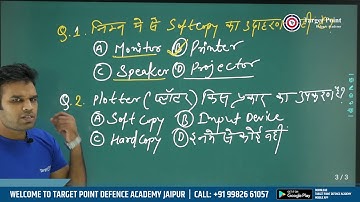 Q.1. निम्न में से Softcopy का उदाहरण
Target Point
(A) Monitor (B) Printer
(C) Speaker (D) Projector
Q.2. Plotter (प्लॉटर) किस प्रकार का उपकरण है?
(A) Soft Copy (B) Input Device
(C) Hard Copy (D) इनमे से कोई नहीं
3/3
WELCOME TO TARGET POINT DEFENCE ACADEMY JAIPUR | CALL: +91 99826 61057
Google Play